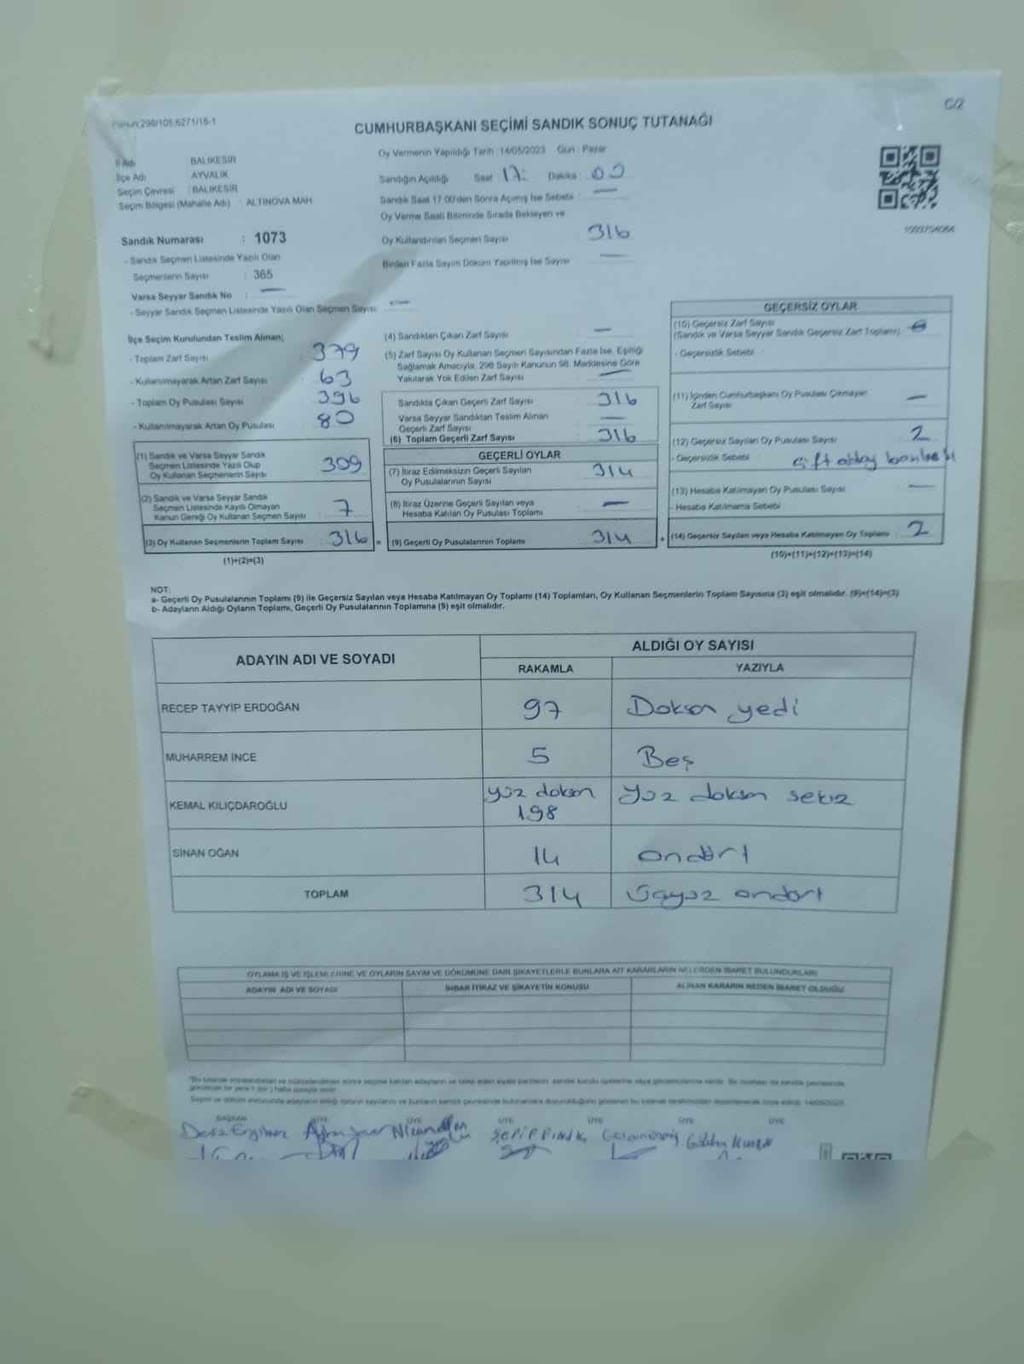 C/2
CUMHURBAŞKANI SEÇİMİ SANDIK SONUÇ TUTANAĞI
İl Adı BALIKESİR
İlçe Adı AYVALIK
Seçim Çevresi : BALIKESİR
Seçim Bölgesi (Mahalle Adı) : ALTINOVA MAH
Sandık Numarası : 1073
- Sandık Seçmen Listesinde Yazılı Olan
Seçmenlerin Sayısı : 365
Varsa Seyyar Sandık No : —
- Seyyar Sandık Seçmen Listesinde Yazılı Olan Seçmen Sayısı : —
Oy Vermenin Yapıldığı Tarih : 14/05/2023 Gün : Pazar
Sandığın Açıldığı Saat 17: Dakika : 00
Sandık Saat 17:00'den Sonra Açılmış İse Sebebi : —
Oy Verme Saati Bitiminde Sırada Bekleyen ve
Oy Kullandırılan Seçmen Sayısı 316
Birden Fazla Sayım Döküm Yapılmış İse Sayısı —
İlçe Seçim Kurulundan Teslim Alınan;
- Toplam Zarf Sayısı 379
- Kullanılmayarak Artan Zarf Sayısı 63
- Toplam Oy Pusulası Sayısı 396
- Kullanılmayarak Artan Oy Pusulası 80
(1) Sandık ve Varsa Seyyar Sandık
Seçmen Listesinde Yazılı Olup
Oy Kullanan Seçmenlerin Sayısı 309
(2) Sandık ve Varsa Seyyar Sandık
Seçmen Listesinde Kayıtlı Olmayan
Kanun Gereği Oy Kullanan Seçmen Sayısı 7
(3) Oy Kullanan Seçmenlerin Toplam Sayısı 316 =
(1)+(2)=(3)
(4) Sandıktan Çıkan Zarf Sayısı —
(5) Zarf Sayısı Oy Kullanan Seçmen Sayısından Fazla İse, Eşitliği
Sağlamak Amacıyla, 298 Sayılı Kanunun 98. Maddesine Göre
Yakılarak Yok Edilen Zarf Sayısı —
Sandıkta Çıkan Geçerli Zarf Sayısı 316
Varsa Seyyar Sandıktan Teslim Alınan
Geçerli Zarf Sayısı —
(6) Toplam Geçerli Zarf Sayısı 316
GEÇERLİ OYLAR
(7) İtiraz Edilmeksizin Geçerli Sayılan
Oy Pusulalarının Sayısı 314
(8) İtiraz Üzerine Geçerli Sayılan veya
Hesaba Katılan Oy Pusulası Toplamı —
(9) Geçerli Oy Pusulalarının Toplamı 314 +
GEÇERSİZ OYLAR
(10) Geçersiz Zarf Sayısı
(Sandık ve Varsa Seyyar Sandık Geçersiz Zarf Toplamı)
- Geçersizlik Sebebi :
(11) İçinden Cumhurbaşkanı Oy Pusulası Çıkmayan
Zarf Sayısı —
(12) Geçersiz Sayılan Oy Pusulası Sayısı 2
- Geçersizlik Sebebi :
(13) Hesaba Katılmayan Oy Pusulası Sayısı —
- Hesaba Katılmama Sebebi
(14) Geçersiz Sayılan veya Hesaba Katılmayan Oy Toplamı 2
(10)+(11)+(12)+(13)=(14)
NOT:
a- Geçerli Oy Pusulalarının Toplamı (9) ile Geçersiz Sayılan veya Hesaba Katılmayan Oy Toplamı (14) Toplamları, Oy Kullanan Seçmenlerin Toplam Sayısına (3) eşit olmalıdır. (9)+(14)=(3)
b- Adayların Aldığı Oyların Toplamı, Geçerli Oy Pusulalarının Toplamına (9) eşit olmalıdır.
ADAYIN ADI VE SOYADI ALDIĞI OY SAYISI
RAKAMLA YAZIYLA
RECEP TAYYİP ERDOĞAN 97 Doksan yedi
MUHARREM İNCE 5 Beş
KEMAL KILIÇDAROĞLU yüz doksan 198 Yüz doksan sekiz
SİNAN OĞAN 14 ondört
TOPLAM 314 Üçyüz ondört
OYLAMA İŞ VE İŞLEMLERİNE VE OYLARIN SAYIM VE DÖKÜMÜNE DAİR ŞİKAYETLERLE BUNLARA AİT KARARLARIN NELERDEN İBARET BULUNDUKLARI
ADAYIN ADI VE SOYADI İHBAR İTİRAZ VE ŞİKAYETİN KONUSU ALINAN KARARIN NEDEN İBARET OLDUĞU
BAŞKAN ÜYE ÜYE ÜYE ÜYE ÜYE ÜYE